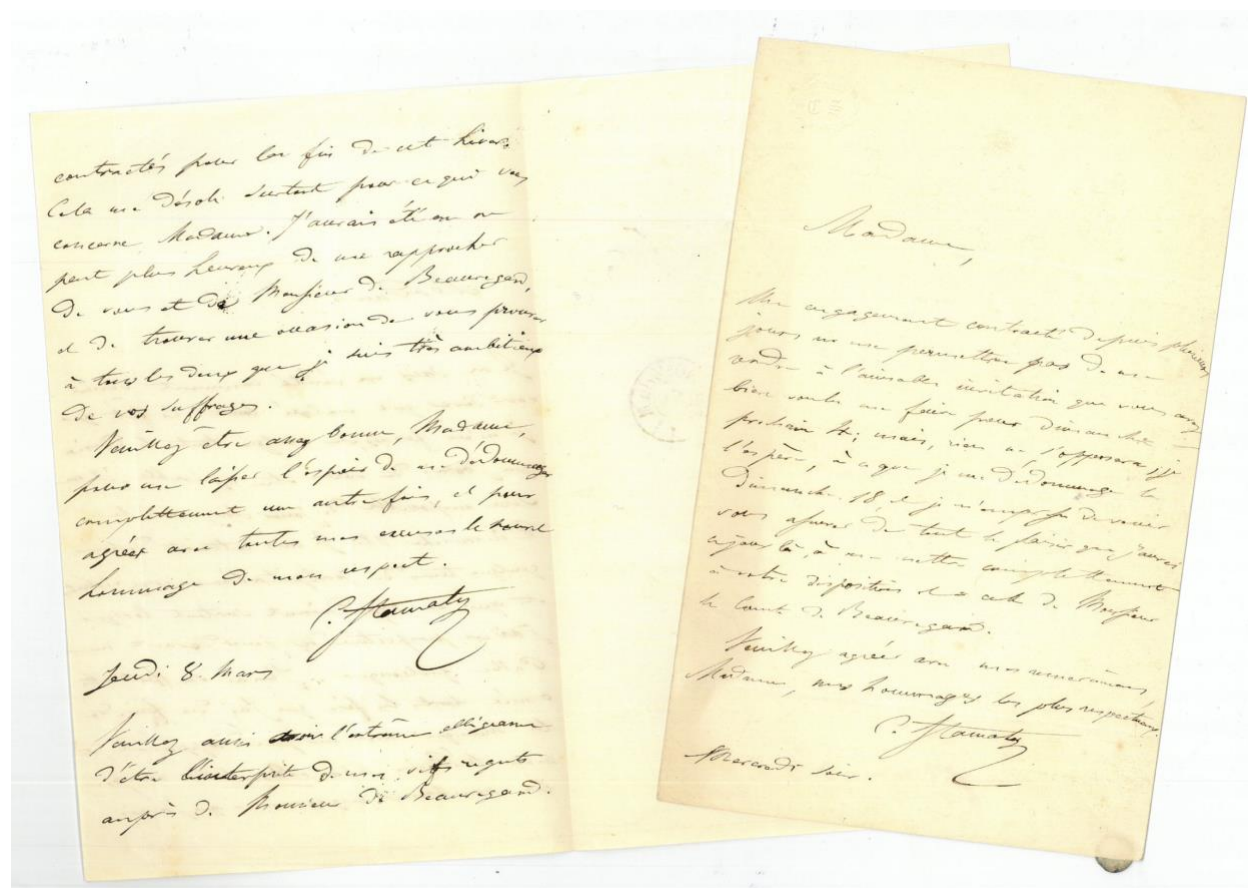 contractés pour la fin de cet hiver.
Cela me désole surtout pour ce qui vous
concerne Madame. J'aurais été on ne
peut plus heureux de me rapprocher
de vous et de Monsieur de Beauregard,
et de trouver une occasion de vous prouver
à tous les deux que je suis très ambitieux
de vos suffrages.
Veuillez être assez bonne, Madame,
pour me laisser l'espoir de me dédommager
complettement une autre fois, et pour
agréer avec toutes mes excuses le nouvel
hommage de mon respect.
C. Stamaty
Jeudi 8 Mars
Veuillez aussi avoir l'extrême obligeance
d'être l'interprète de mes vifs regrets
auprès de Monsieur de Beauregard.
Madame,
Un engagement contracté depuis plusieurs
jours ne me permettra pas de me
rendre à l'aimable invitation que vous avez
bien voulu me faire pour Dimanche
prochain 4; mais, rien ne s'opposera, je
l'espère, à ce que je me dédommage le
Dimanche 18, et je m'empresse de venir
vous assurer de tout le plaisir que j'aurai
ce jour là, à me mettre complettement
à votre disposition et à celle de Monsieur
le Comte de Beauregard.
Veuillez agréer avec mes remerciements,
Madame, mes hommages les plus respectueux.
C. Stamaty
Mercredi soir.